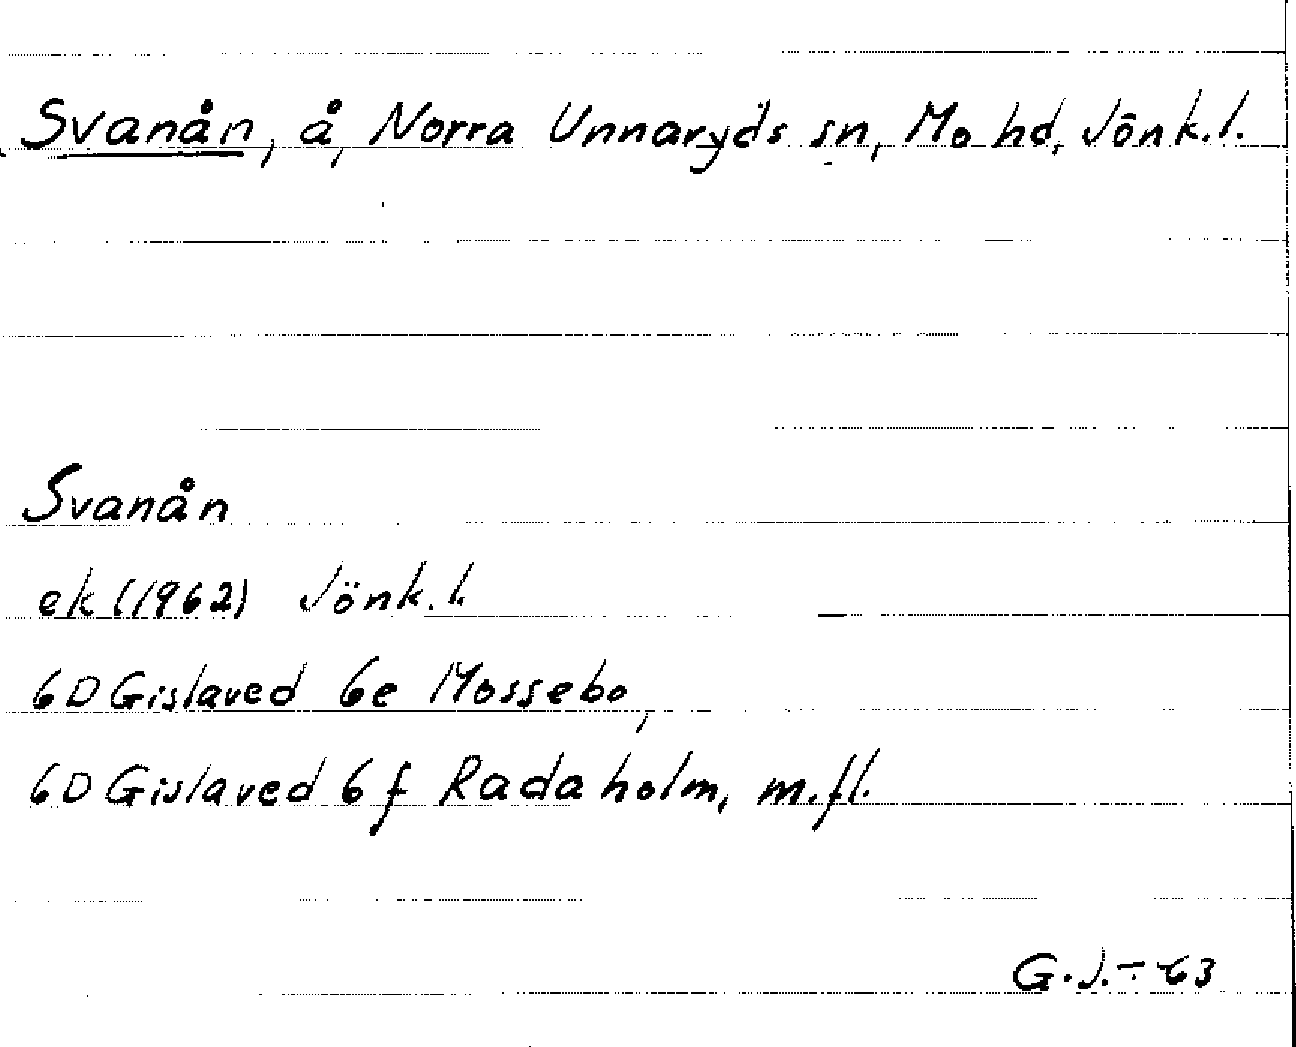 Svanån, å, Norra Unnaryds sn, Mo hd, Jönk.l.
Svanån
ek (1962) Jönk.l.
6D Gislaved 6e Mossebo,
6D Gislaved 6f Radaholm, m.fl.
G.J.-63